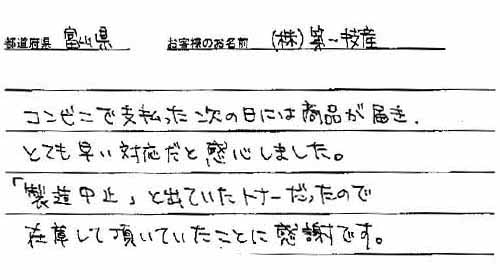 都道府県 富山県 お客様のお名前 (株)第一技産
コンビニで支払った次の日には商品が届き、
とても早い対応だと感心しました。
「製造中止」と出ていたトナーだったので
在庫して頂いていたことに感謝です。